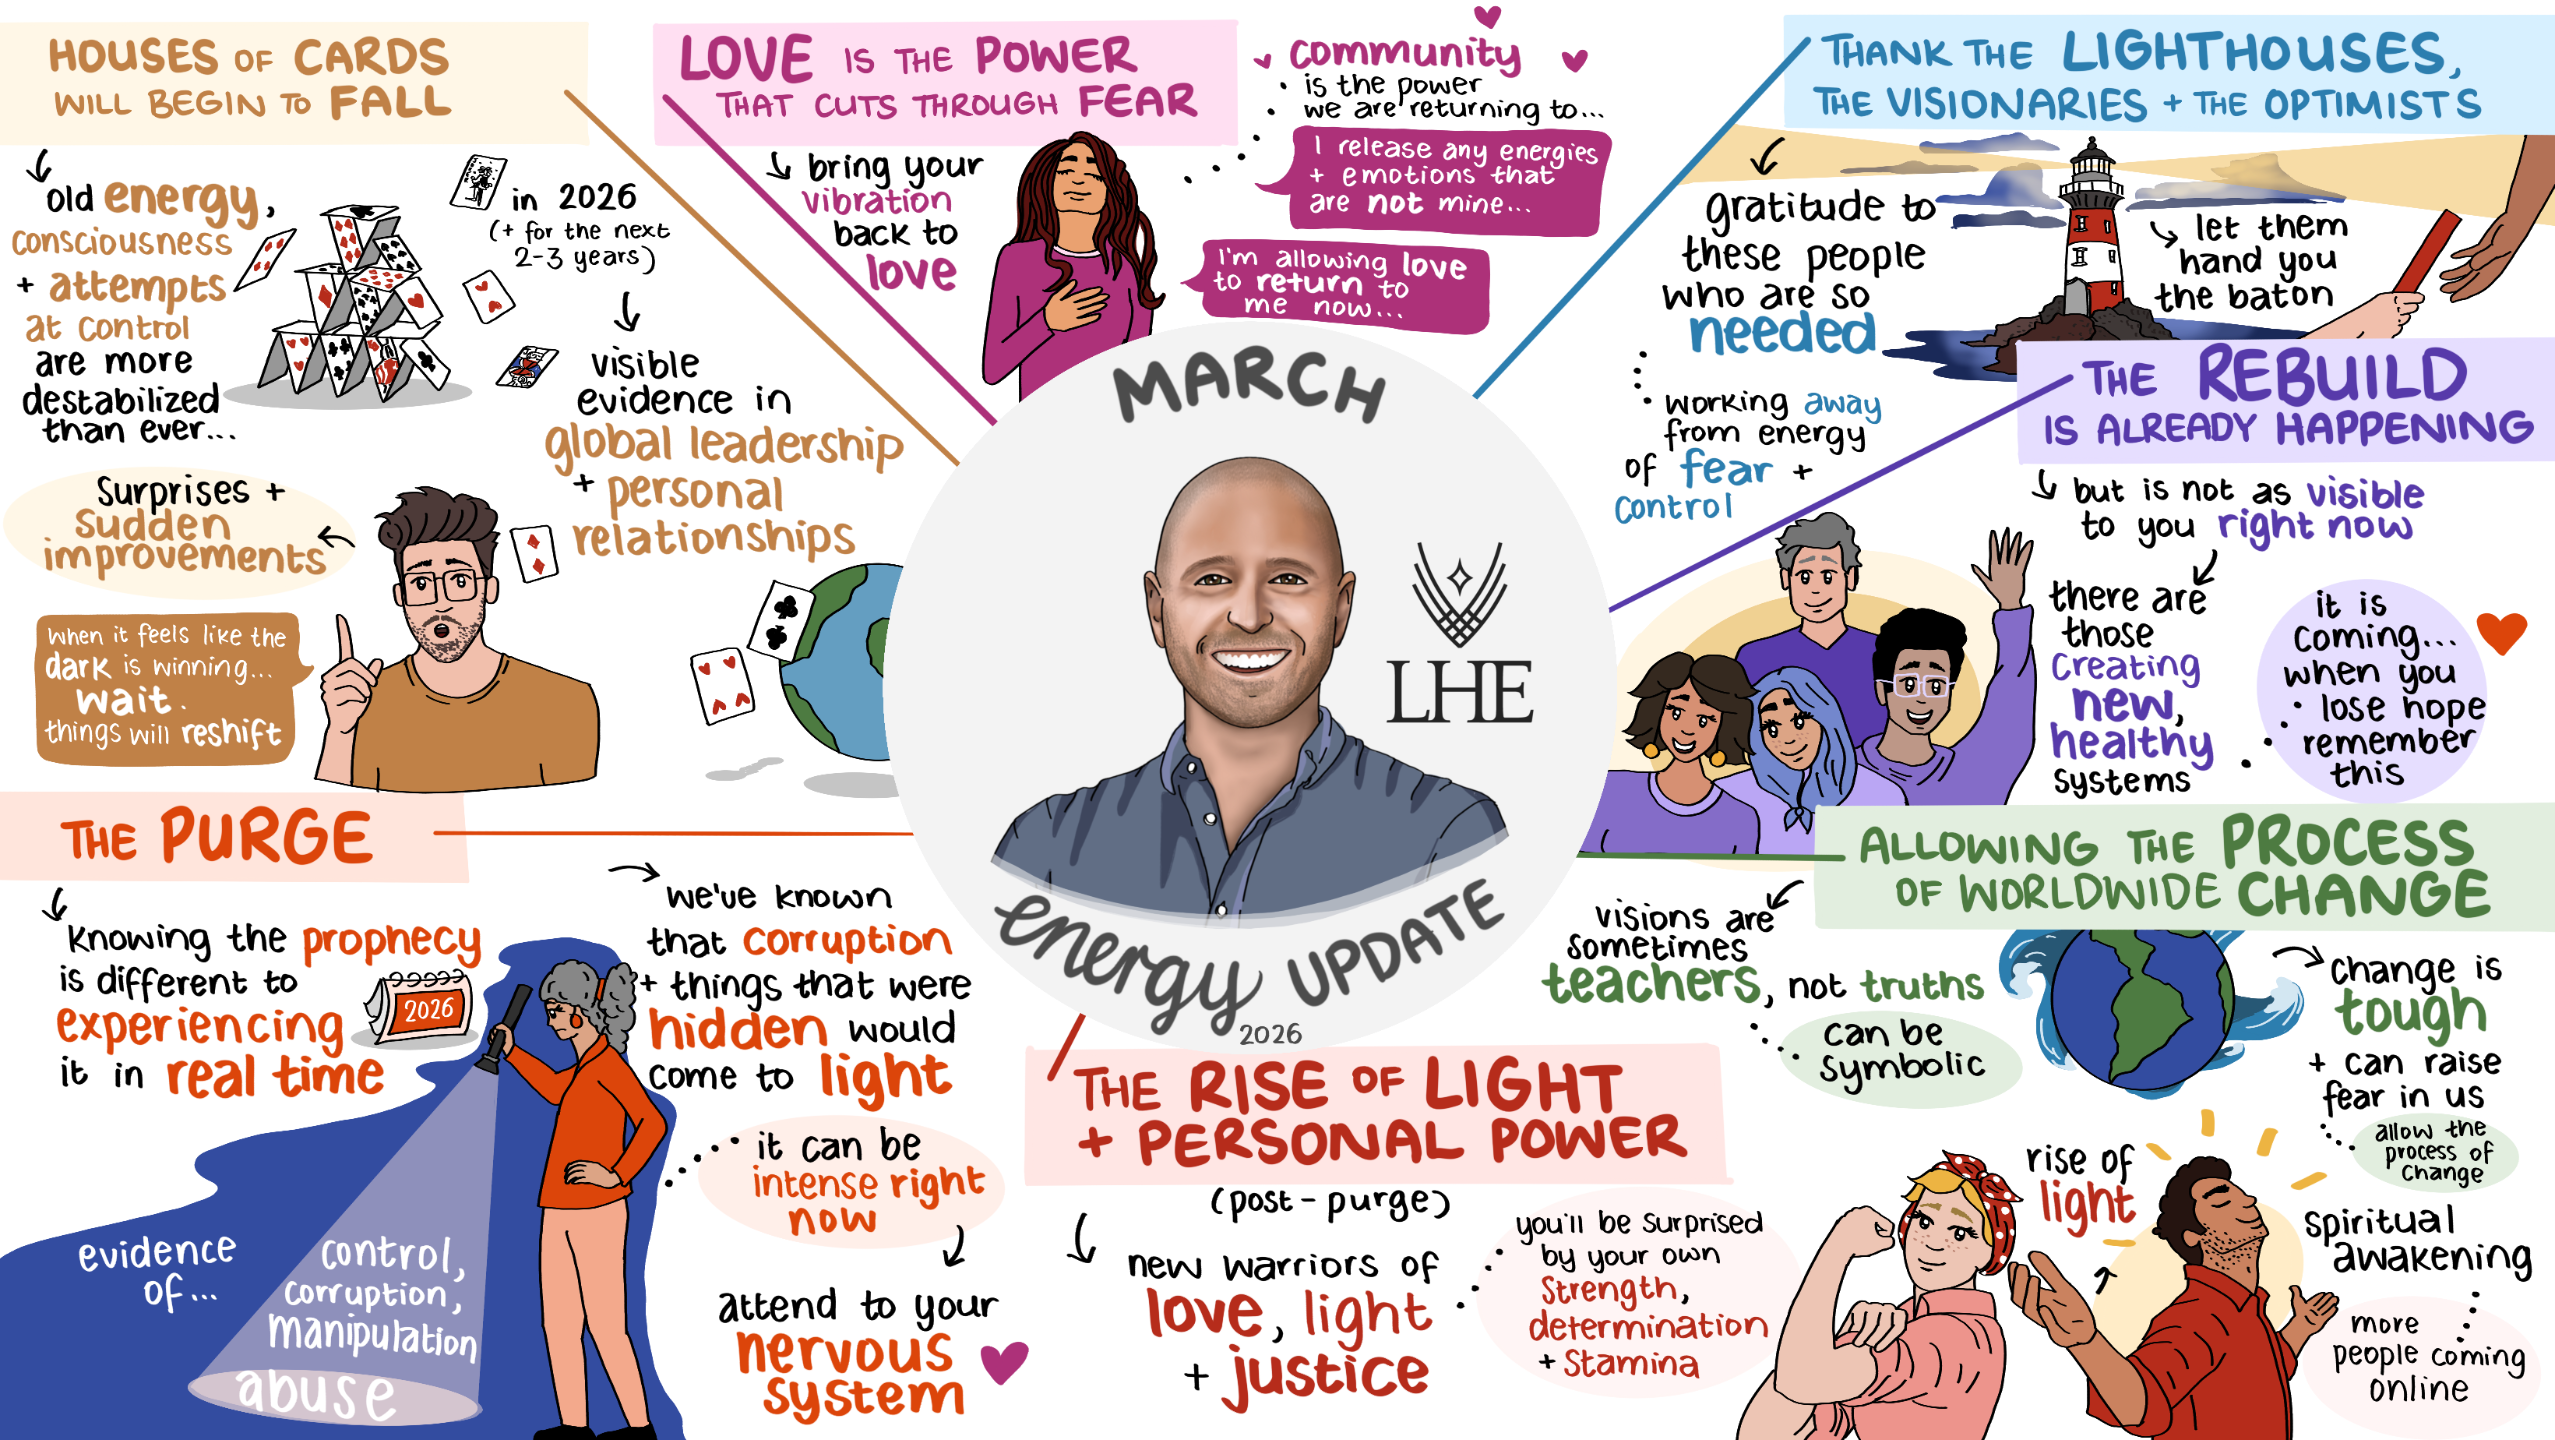 HOUSES OF CARDS
WILL BEGIN TO FALL
old energy,
consciousness
+ attempts
at control
are more
destabilized
than ever...
in 2026
(+ for the next
2-3 years)
visible
evidence in
global leadership
+ personal
relationships
surprises +
sudden
improvements
when it feels like the
dark is winning...
wait.
things will reshift
LOVE IS THE POWER
THAT CUTS THROUGH FEAR
bring your
vibration
back to
love
community
is the power
we are returning to...
I release any energies
+ emotions that
are not mine...
I'm allowing love
to return to
me now...
THANK THE LIGHTHOUSES,
THE VISIONARIES + THE OPTIMISTS
gratitude to
these people
who are so
needed
working away
from energy
of fear +
control
let them
hand you
the baton
THE REBUILD
IS ALREADY HAPPENING
but is not as visible
to you right now
there are
those
creating
new,
healthy
systems
it is
coming...
when you
lose hope
remember
this
MARCH
LHE
energy UPDATE
2026
THE PURGE
knowing the prophecy
is different to
experiencing
it in real time
2026
we've known
that corruption
+ things that were
hidden would
come to light
it can be
intense right
now
attend to your
nervous
system
evidence
of...
control,
corruption,
manipulation
abuse
THE RISE OF LIGHT
+ PERSONAL POWER
(post-purge)
new warriors of
love, light
+ justice
you'll be surprised
by your own
strength,
determination
+ stamina
rise of
light
spiritual
awakening
more
people coming
online
ALLOWING THE PROCESS
OF WORLDWIDE CHANGE
visions are
sometimes
teachers, not truths
can be
symbolic
change is
tough
+ can raise
fear in us
allow the
process of
change